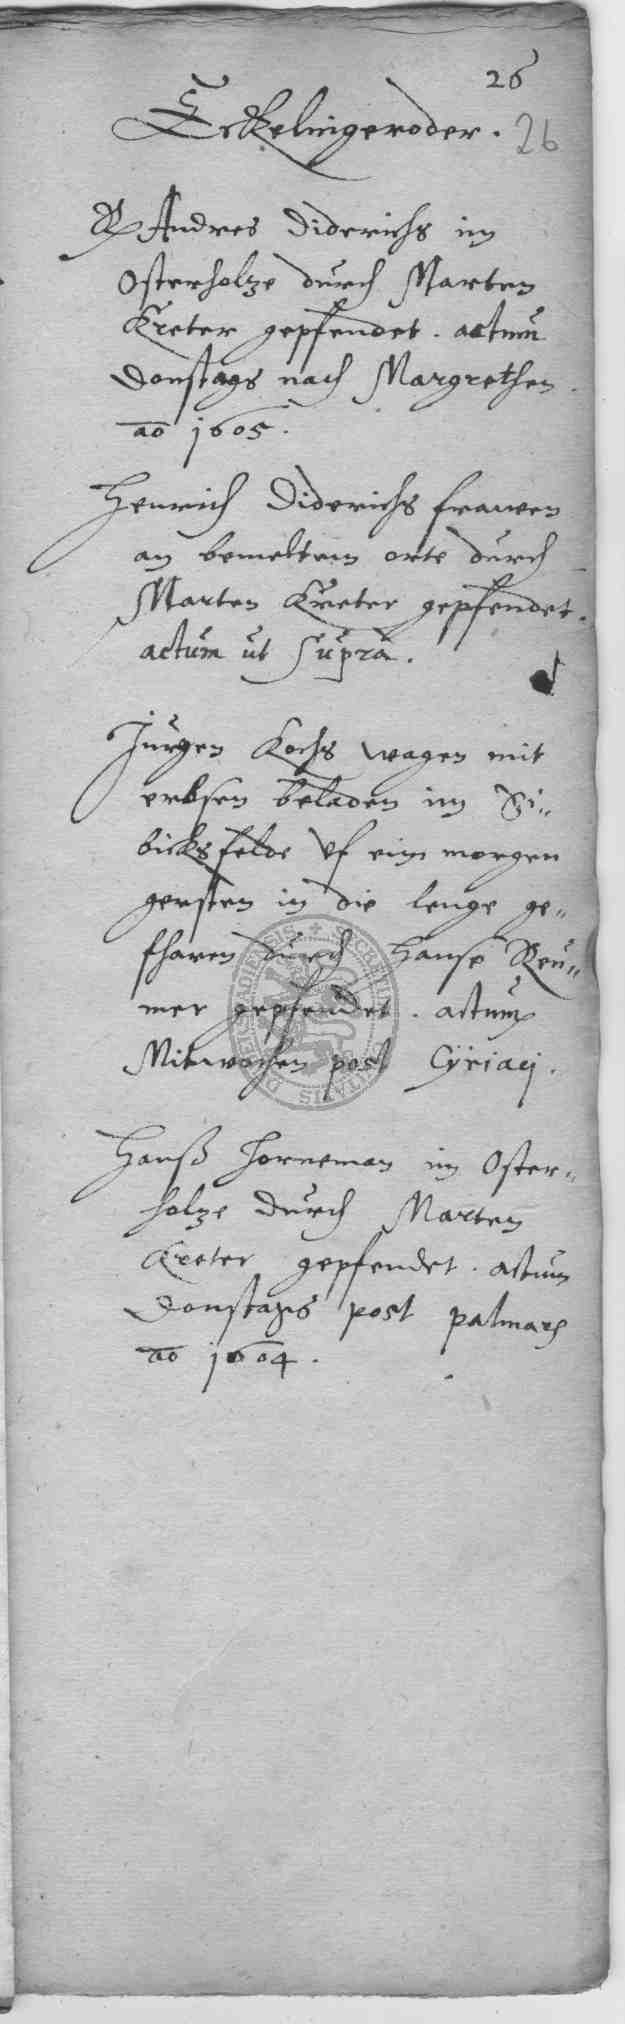 26
Eckelingeroder. 26
R Andres Diderichs im
Osterholtze durch Marten
Kreter gepfendet. actum
Donstags nach Margrethen
ao 1605.
Henrich Diderichs frawen
an bemeltem orte durch
Marten Kreter gepfendet.
actum ut supra.
Jurgen Kochs wagen mit
erbsen beladen im Si-
bicksfelde uf eim morgen
gersten in die lenge ge-
fharen durch Hanse Reu-
mer gepfendet. actum
Mitwochen post Cÿriaci.
Hanß Horneman im Oster-
holze durch Marten
Kreter gepfendet. actum
Donstags post palmar.
ao 1604.